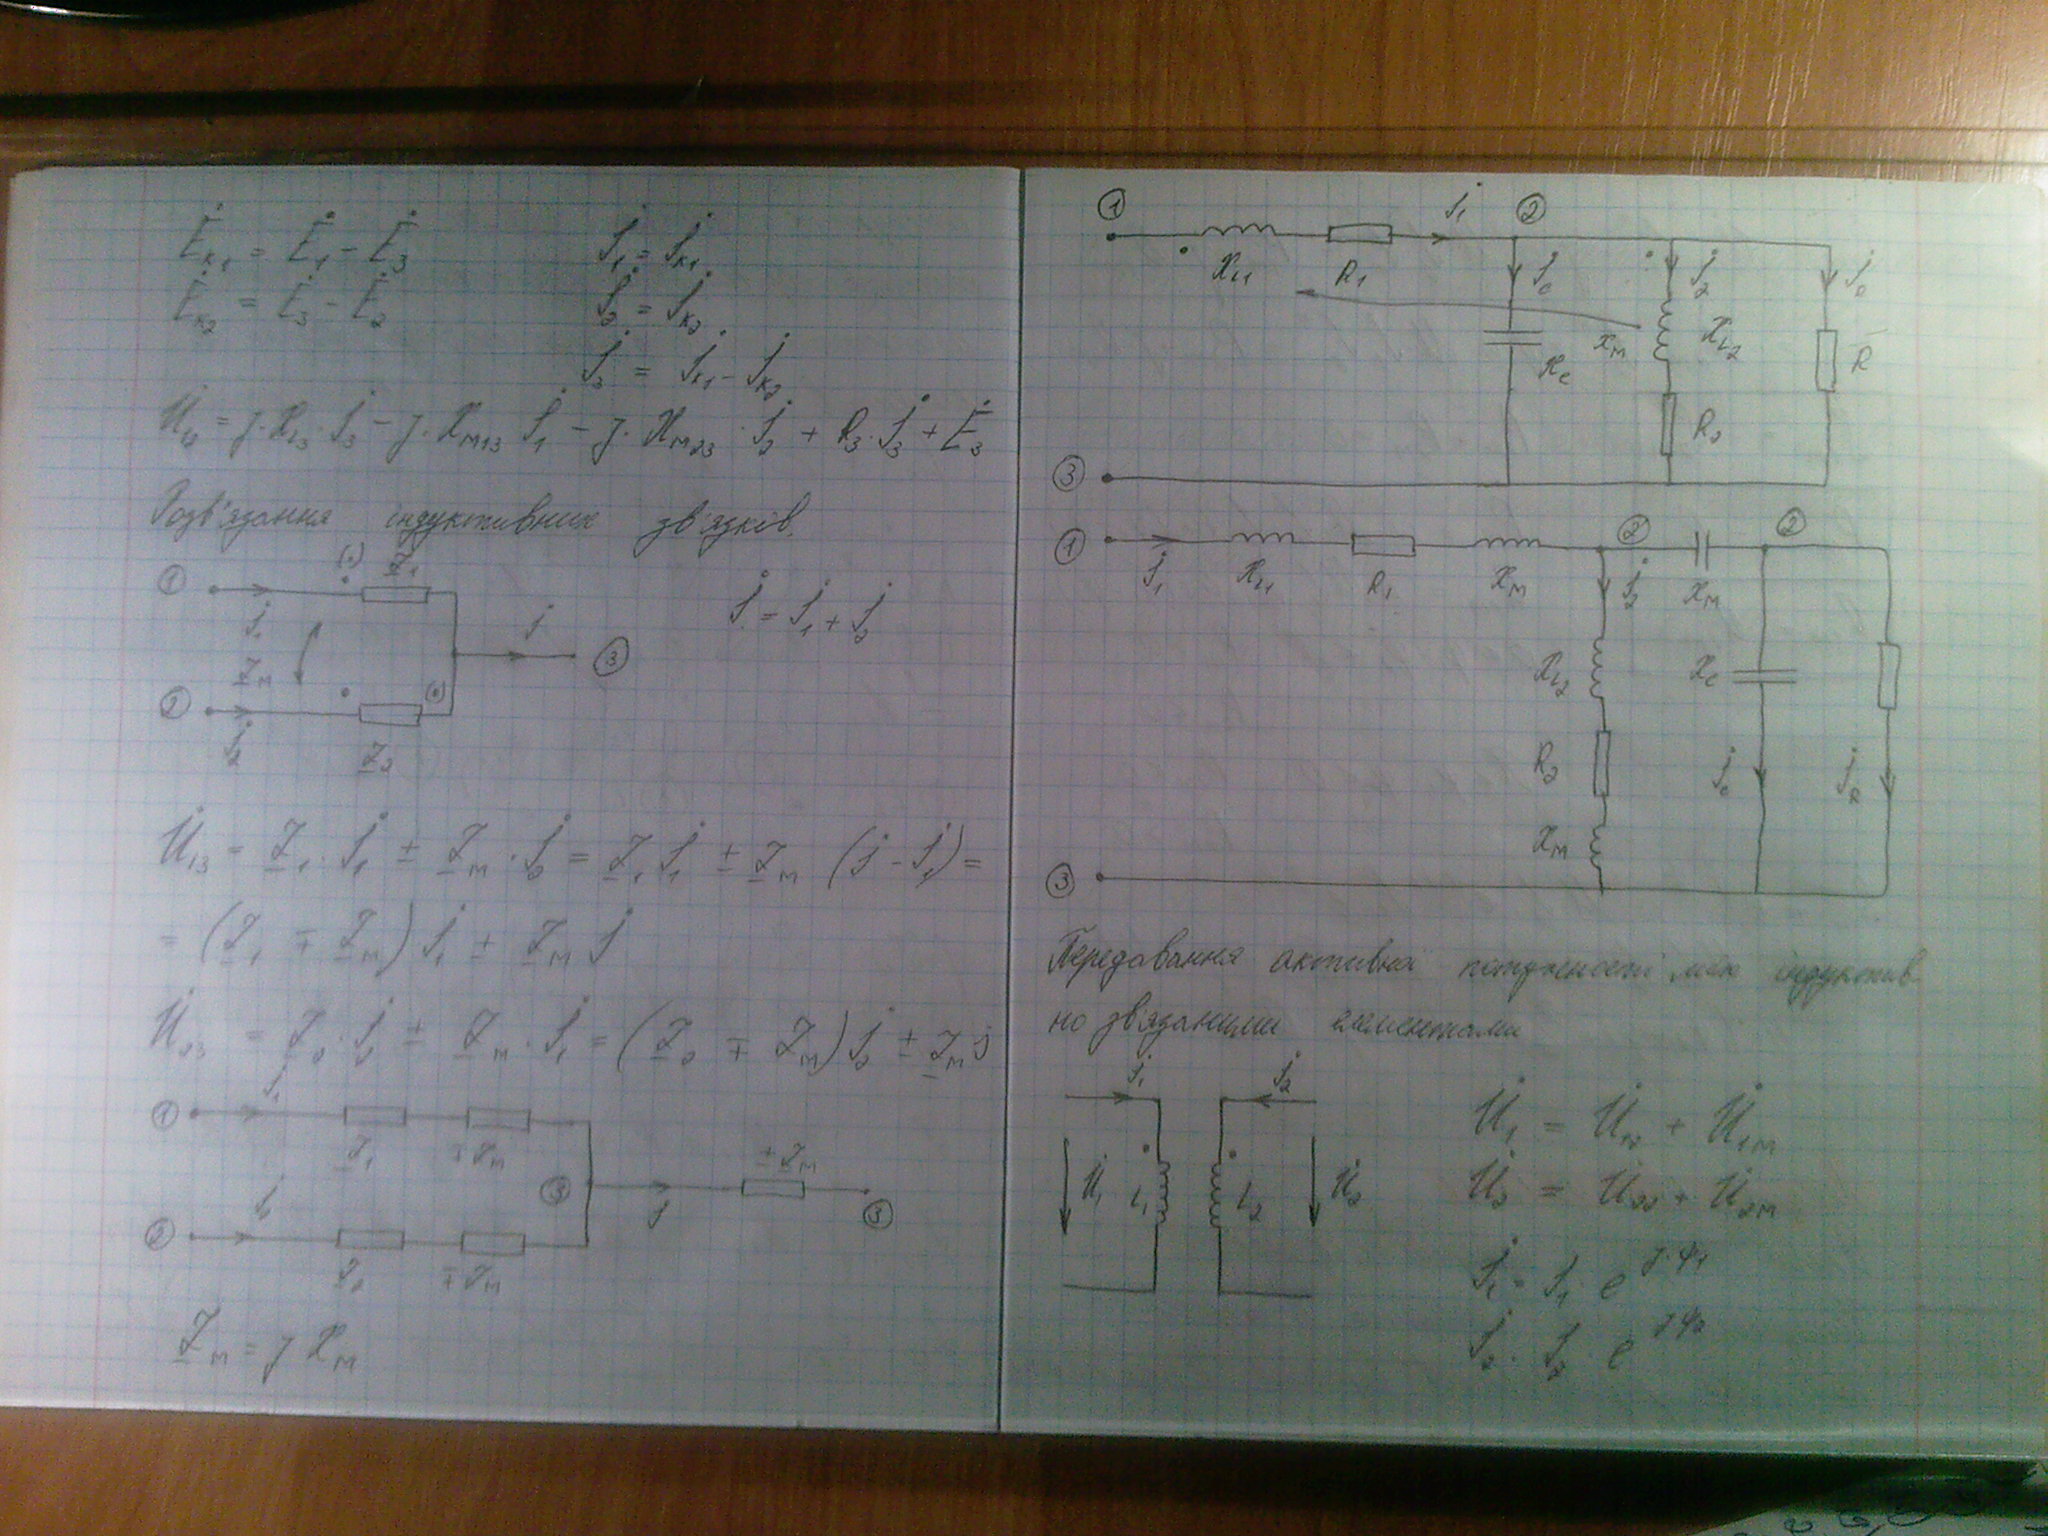 Ė_к1 = Ė_1 - Ė_3
İ_1 = İ_к1
Ė_к2 = Ė_3 - Ė_2
İ_2 = İ_к2
İ_3 = İ_к1 - İ_к2
= j·X_L3·İ_3 - j·X_M13 İ_1 - j·X_M23·İ_2 + R_3·İ_3 + Ė_3
Розв'язання індуктивних зв'язків.
① (•) Z_1
İ_1 İ
Z_M ③
İ = İ_1 + İ_2
② (•)
İ_2 Z_2
U̇_13 = Z_1·İ_1 ± Z_M·İ_2 = Z_1 İ_1 ± Z_M (İ - İ_1) =
= (Z_1 ∓ Z_M) İ_1 ± Z_M İ
U̇_23 = Z_2·İ_2 ± Z_M·İ_1 = (Z_2 ∓ Z_M) İ_2 ± Z_M İ
① İ_1
Z_1 ∓Z_M
③ İ ±Z_M ③
② İ_2
Z_2 ∓Z_M
Z_M = j X_M
① İ_1 ②
X_L1 R_1 İ_C İ_2
X_C X_M X_L2 R
R_2
③
① İ_1 X_L1 R_1 X_M ② İ_2 X_M ②
X_L2 X_C
R_2 İ_C İ_R
X_M
③
Передавання активної потужності між індуктив
но зв'язаними елементами
İ_1 İ_2
U̇_1 L_1 L_2 U̇_2
U̇_1 = + U̇_1M
U̇_2 = U̇_22 + U̇_2M
İ_1 = I_1 e^jφ1
İ_2 = I_2 e^jφ2